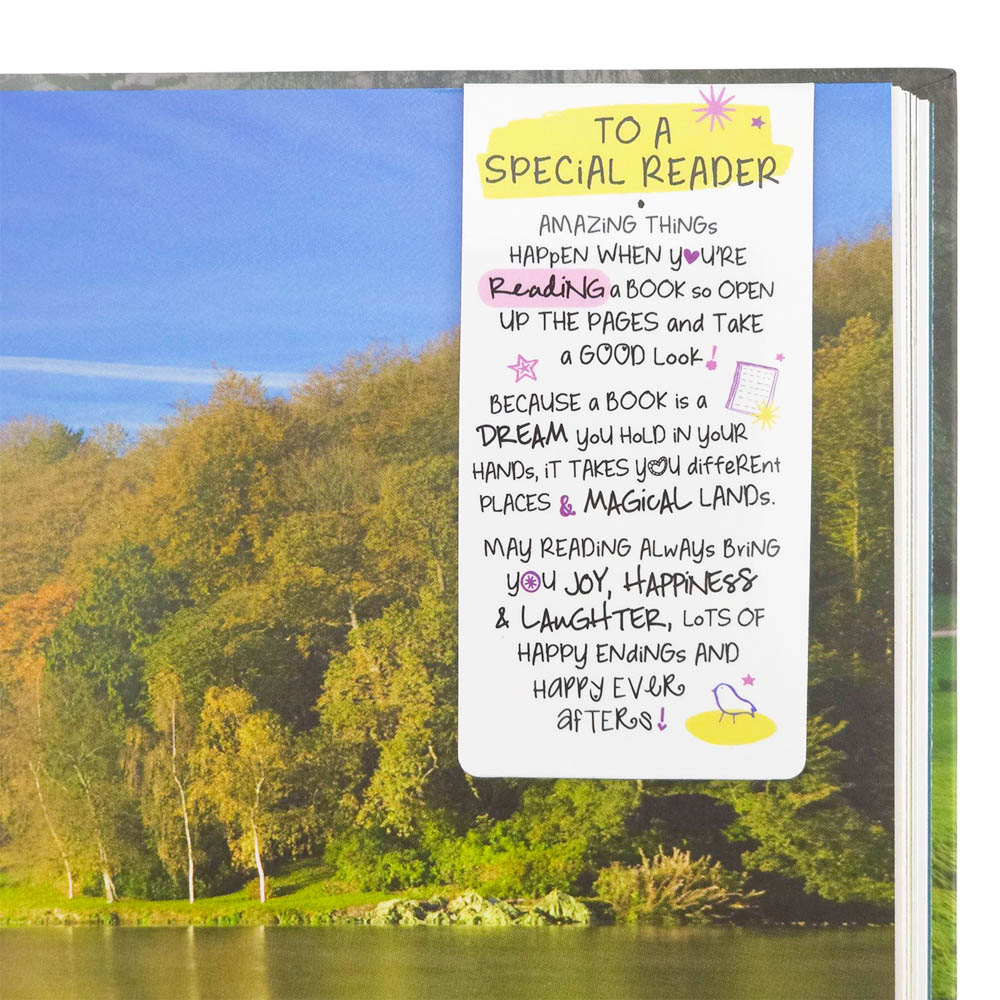 TO A
SPECiAL READER
AMAZiNG THiNGs
HAPpEN WHEN yOU'RE
ReadiNG a BOOK so OPEN
UP THE PAGES and TaKE
a GOOD LooK!
BECAUSE a BOOK is a
DREAM yOU HoLD IN YOUR
HANDs, iT TAKES yOU diffeREnt
PLACES & MAGiCAL LANDs.
MAY READiNG ALwAys BriNG
yOU JOY, HAPPiNESS
& LAuGHTER, LoTS OF
HAPPY ENdiNGs AND
HAPPy EVEr
afTERs!